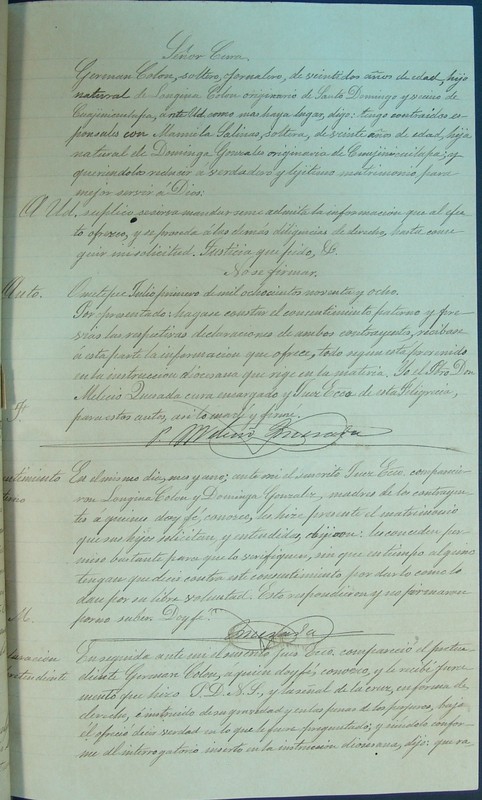 Señor Cura.
German Colon, soltero, jornalero, de veintidos años de edad, hijo
natural de Longina Colon originario de Santo Domingo y vecino de
Cuajinicuilapa, ante Ud. como mas haya lugar, digo: tengo contraidos es-
ponsales con Mamila Salinas, soltera, de veinte años de edad, hija
natural de Dominga Gonzales originaria de Cuajinicuilapa; y
queriendolos reducir a verdadero y lejitimo matrimonio para
mejor servir á Dios:
A Ud. suplico se sirva mandar se me admita la informacion que al efec-
to ofrezco, y se proceda á las demás diligencias de derecho, hasta conse-
guir mi solicitud. Justicia que pido, &.
No se firmar.
Auto. Ometepec Julio primero de mil ochocientos noventa y ocho.
Por presentado: hagase constar el consentimiento paterno y pre-
vias las respectivas declaraciones de ambos contrayentes, recibase
á esta parte la informacion que ofrece, todo segun está prevenido
en la instruccion diocesana que rige en la materia. Yo el Pbro. Don
Melicio Quesada cura encargado y Juez Ecco. de esta feligrecia,
para estos autos, así lo mandé y firmé.
P. Melicio Quesada
sentimiento En el mismo dia, mes y año; ante mi el suscrito Juez Ecco. comparecie-
terno ron Longina Colon y Dominga Gonzalez, madres de los contrayen-
tes á quienes doy fé, conosco, les hize presente el matrimonio
que sus hijos solicitan, y entendidas, dijeron: les conceden per-
miso bastante para que lo verifiquen, sin que en tiempo alguno
tengan que decir contra este consentimiento por darlo como lo
dan por su libre voluntad. Esto respondieron y no firmaron
M. por no saber. Doy fé.
Quesada
claracion En seguida ante mi el suscrito Juez Ecco. compareció el preten-
pretendiente diente German Colon, a quien doy fé, conosco, y le recibí jura-
mento que hizo P. D. N. S., y la señal de la cruz, en forma de
derecho, é instruido de su gravedad y en las penas de los perjuros, bajo
él ofreció decir verdad en lo que le fuere preguntado; y siendolo confor-
me al interrogatorio inserto en la instruccion diocesana, dijo: que se